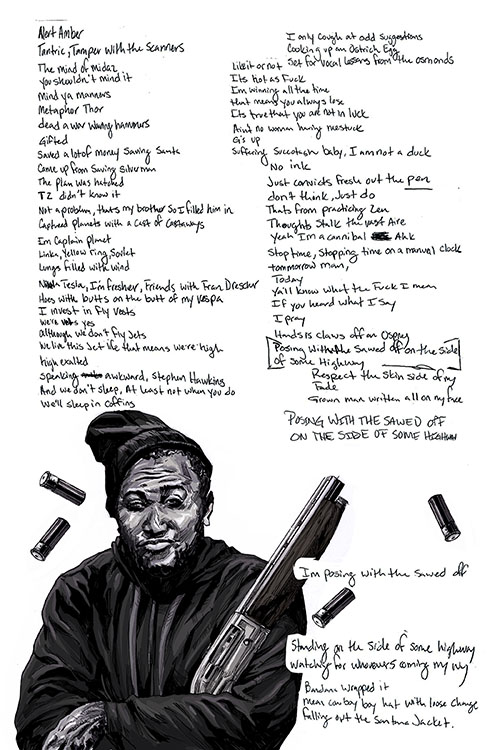 Alert Amber
Tantric, Tamper with the Scanners
The mind of midaz
you shouldn't mind it
Mind ya manners
Metaphor Thor
dead a war waving hammers
Gifted
Saved a lot of money Saving Santa
Came up from Saving Silverman
The plan was hatched
T2 didn't know it
Not a problem, thats my brother So I filled him in
Captured planets with a cast of castaways
Im Captain planet
Linka, Yellow ring, Soilet
Lungs filled with wind
Tesla, I'm fresher, Friends with Fran Drescher
Hoes with butts on the butt of my vespa
I invest in fly vests
We're yes
although we don't fly Jets
We live this Jet life that means we're high
high exalted
speaking awkward, Stephen Hawkins
And we don't sleep, At least not when you do
We'll sleep in coffins
I only cough at odd suggestions
Cooking up an Ostrich Egg
Set for vocal lessons from the osmonds
Like it or not
Its hot as Fuck
Im winning all the time
that means you always lose
Its true that you are not in luck
Ain't no woman having me stuck
G's up
Suffering Succotash baby, I am not a duck
No ink
Just convicts fresh out the pen
don't think, Just do
Thats from practicing Zen
Thoughts Stalk the Aire
Yeah I'm a cannibal Ahk
Stop time, Stopping time on a manual clock
tommorrow man,
Today
Ya'll know what the Fuck I mean
If you heard what I say
I pray
Hands is claws off an Osprey
Posing With the Sawed off on the Side
of Some Highway
Respect the Skin side of my
Fade
Grown man written all on my face
POSING WITH THE SAWED OFF
ON THE SIDE OF SOME HIGHWAY
Im posing with the sawed off
Standing on the side of some highway
watching for whoevers coming my way
Bandana Wrapped it
mean cowboy hat with loose change
falling out the Santana Jacket.